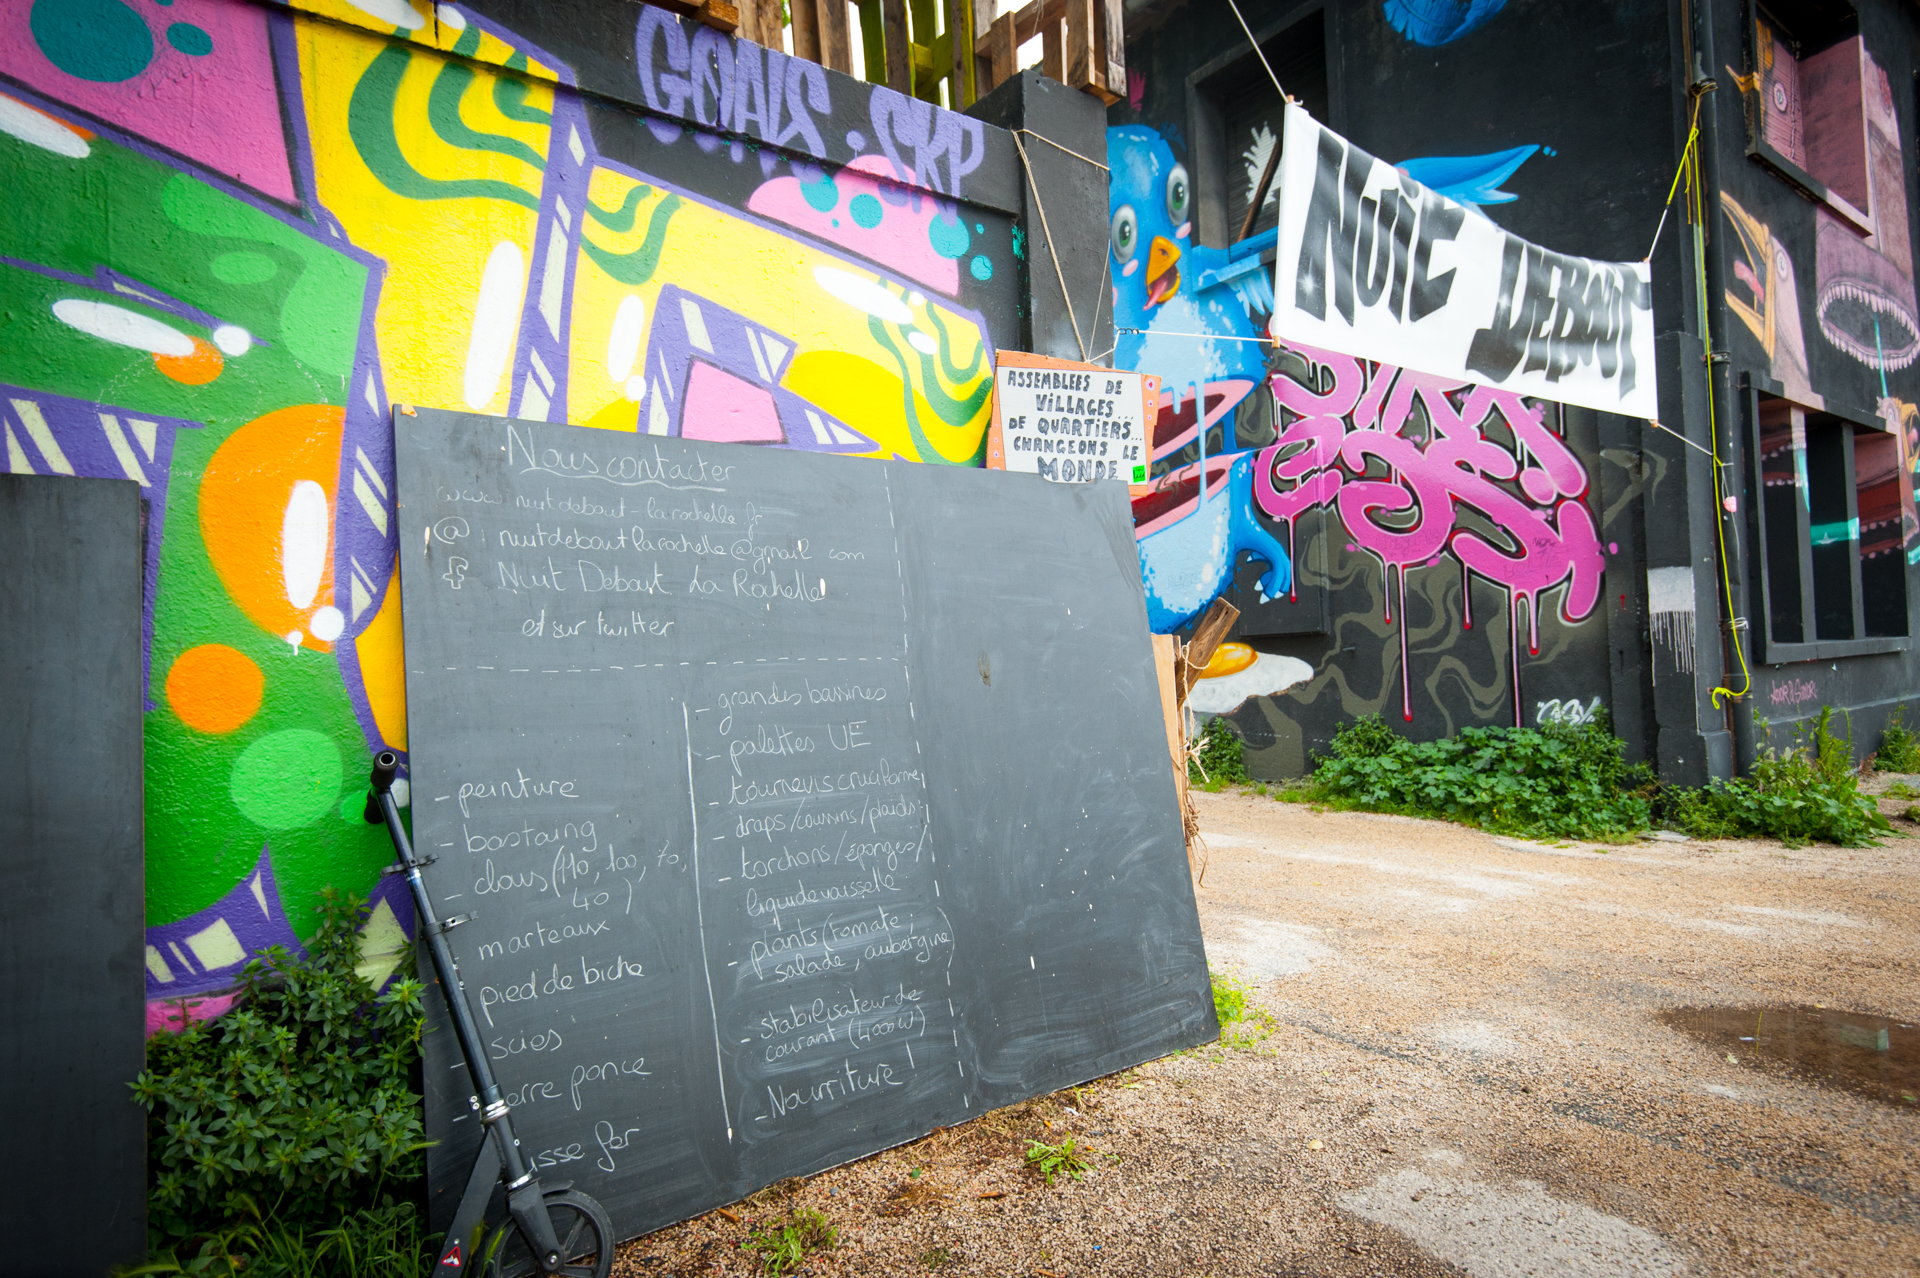 GOALS . SKP
NUIT DEBOUT
ASSEMBLEES DE
VILLAGES...
DE QUARTIERS...
CHANGEONS LE
MONDE
Nous contacter
www.nuitdebout-larochelle.fr
@ : nuitdeboutlarochelle@gmail com
f Nuit Debout La Rochelle
et sur twitter
- peinture
- bastaing
- clous (110, 100, 70,
40)
marteaux
pied de biche
- scies
- erre ponce
usse fer
- grandes bassines
- palettes UE
- tournevis cruciforme
- draps/coussins/plaids
- torchons/éponges/
liquide vaisselle
- plants (tomate,
salade, aubergine)
- stabilisateur de
courant (4000W)
- Nourriture !